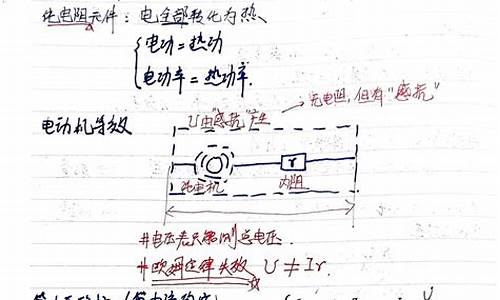 纯电阻元件：电全部转化为热、
电功 = 热功
电功率 = 热功率.
无电阻, 但有"感抗"
U由"感抗"产生
电动机等效
r
纯电机 内阻
#电压表只能测总电压.
#欧姆定律失效 U ≠ Ir.